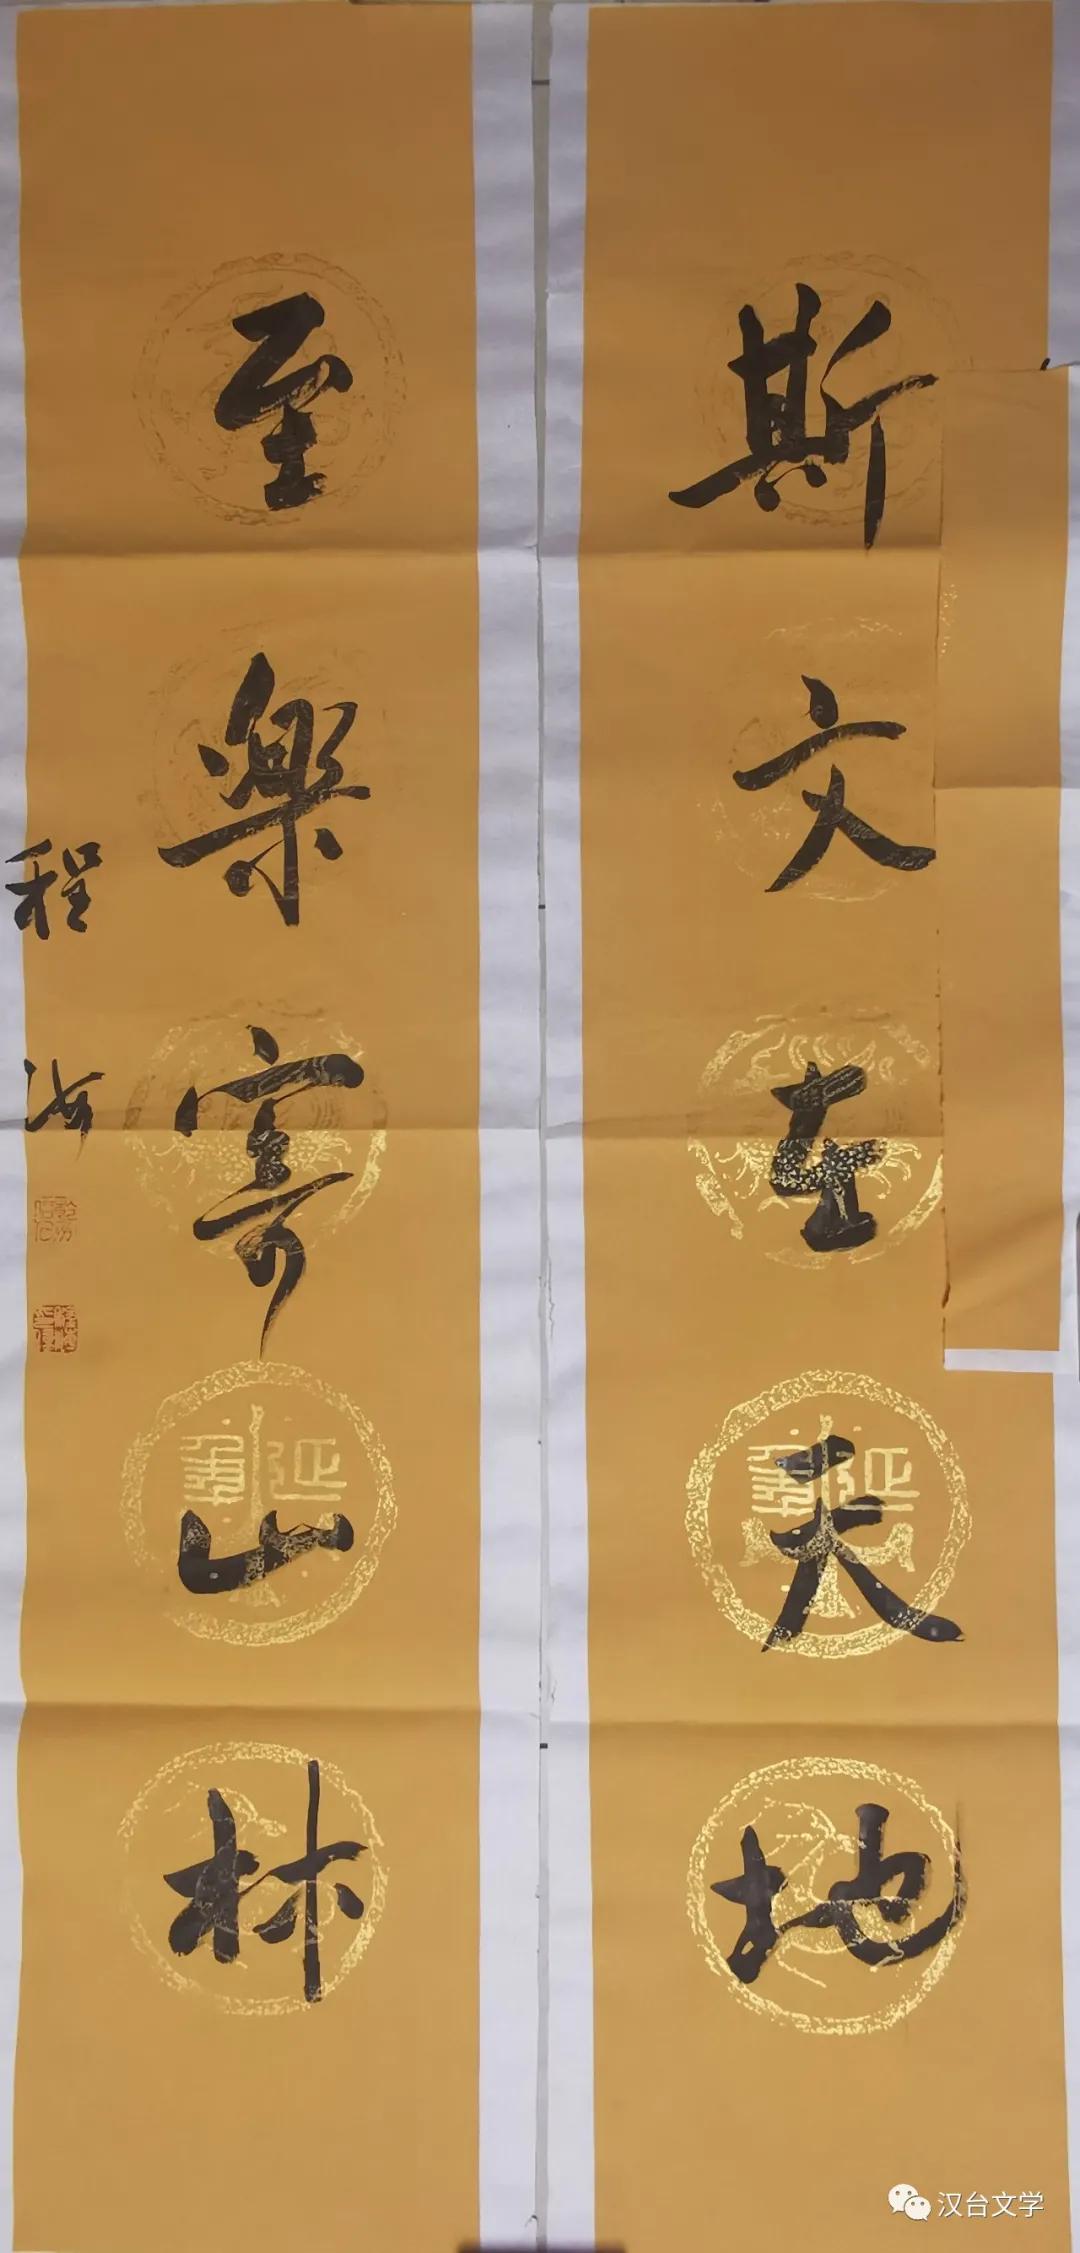 斯文在天地
至樂寄山林
程海
汉台文学